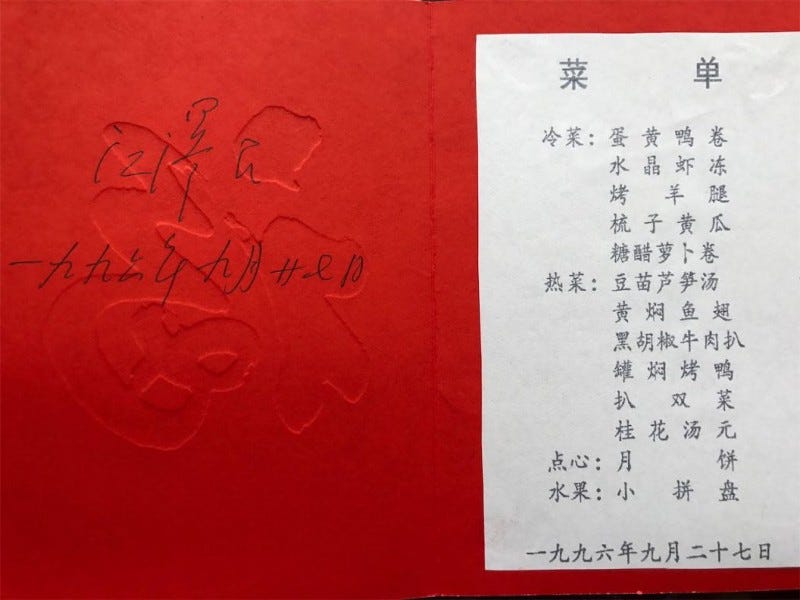 江泽民
一九九六年九月廿七日
菜 单
冷菜：蛋黄鸭卷
水晶虾冻
烤羊腿
梳子黄瓜
糖醋萝卜卷
热菜：豆苗芦笋汤
黄焖鱼翅
黑胡椒牛肉扒
罐焖烤鸭
扒双菜
桂花汤元
点心：月饼
水果：小拼盘
一九九六年九月二十七日